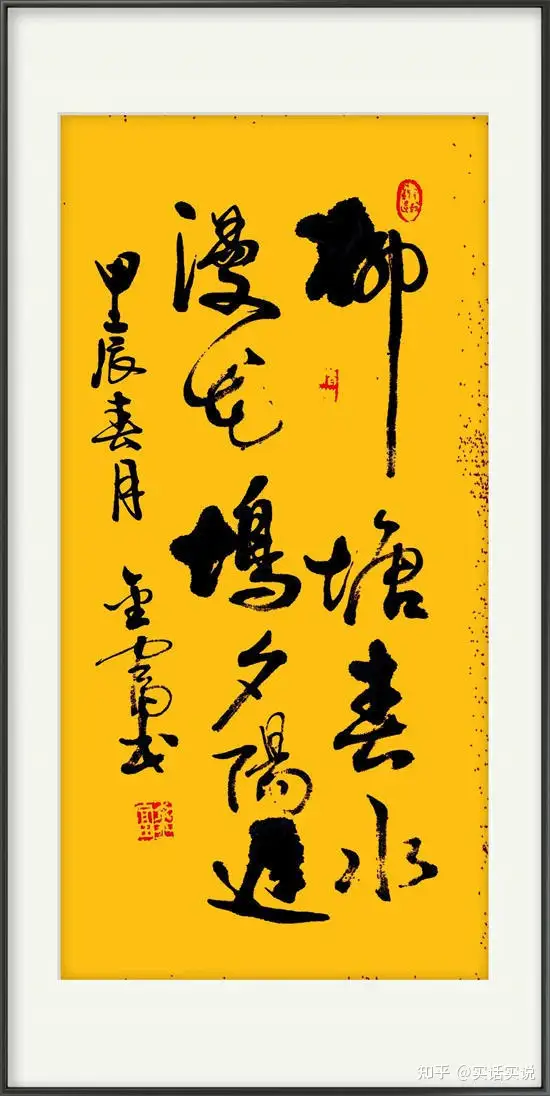 柳塘春水
漫花塢夕陽遲
甲辰春月
金富民
知乎 @实话实说